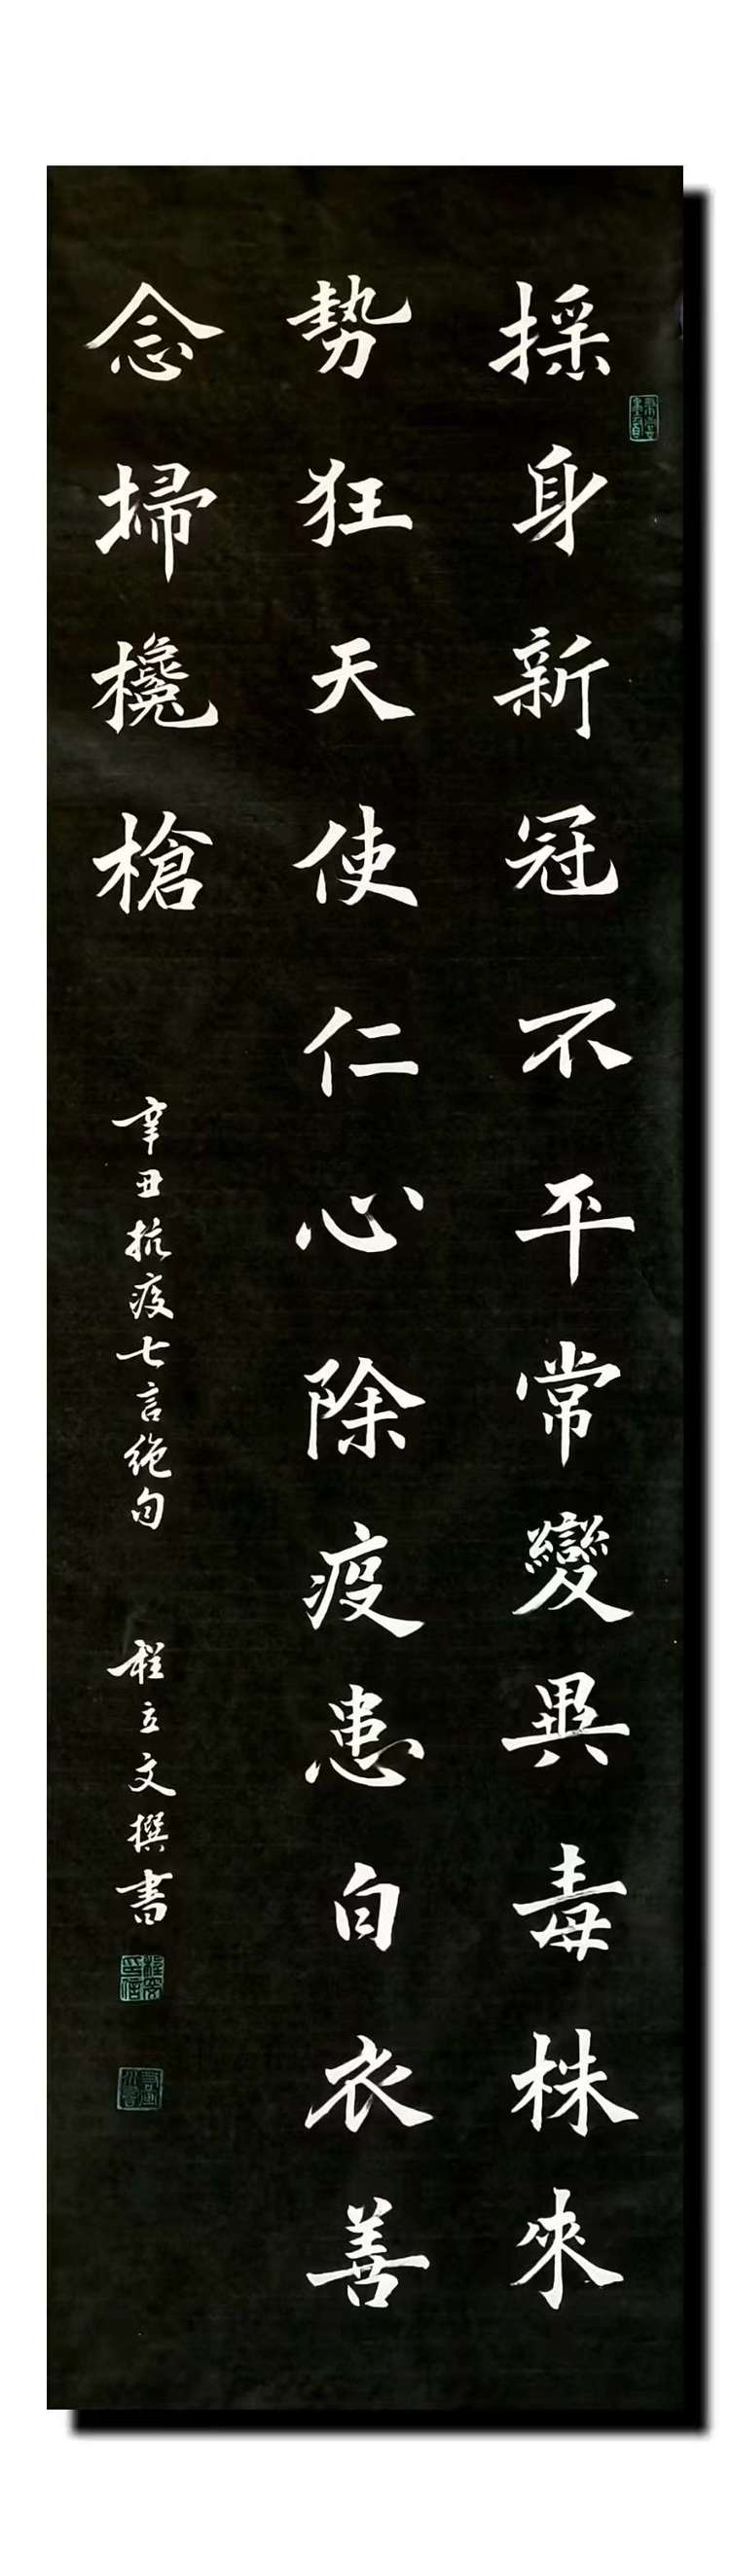 採身新冠不平常變異毒株來
勢狂天使仁心除疫患白衣善
念掃欃槍
辛丑抗疫七言絶句
程立文撰書